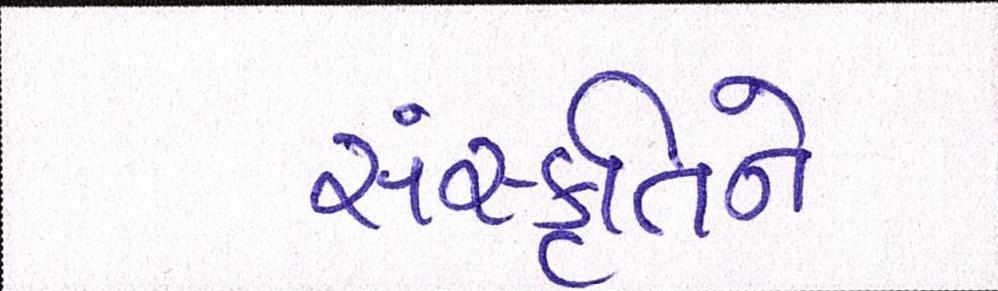 સંસ્કૃતિને